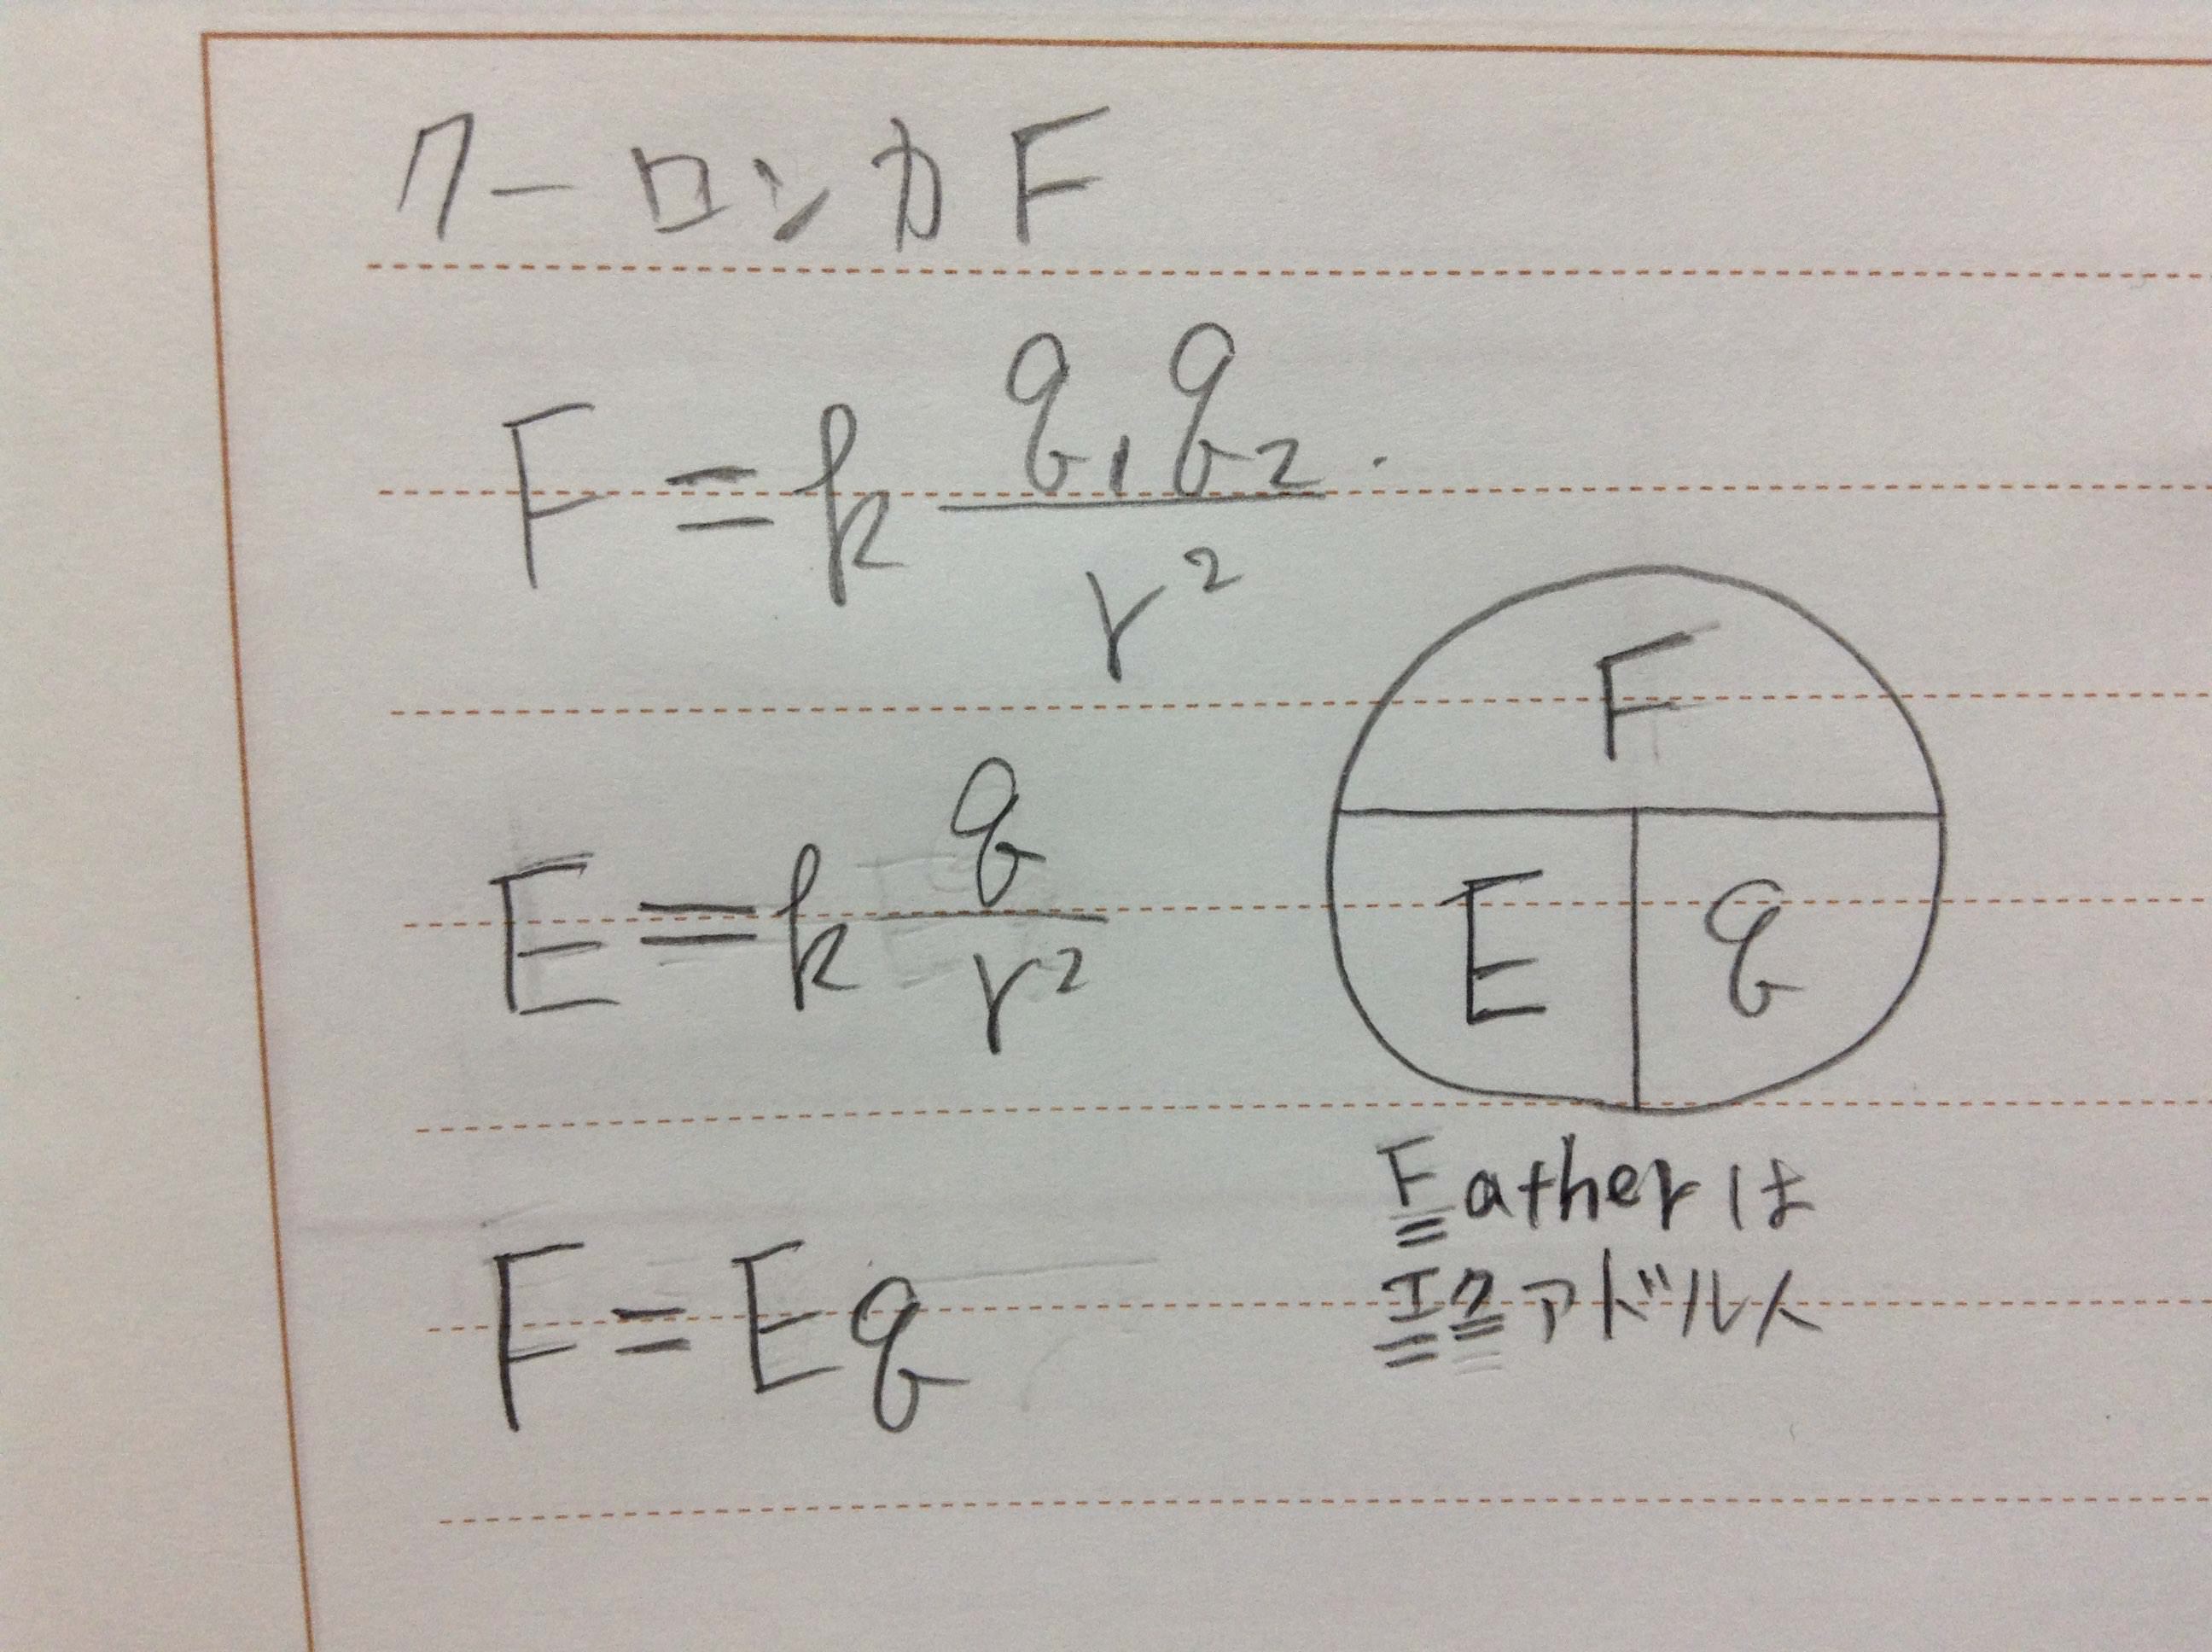 クーロン力F
F=k q1q2/r²
E=k q/r²
F=Eq
F
E q
Fatherは
エクアドル人